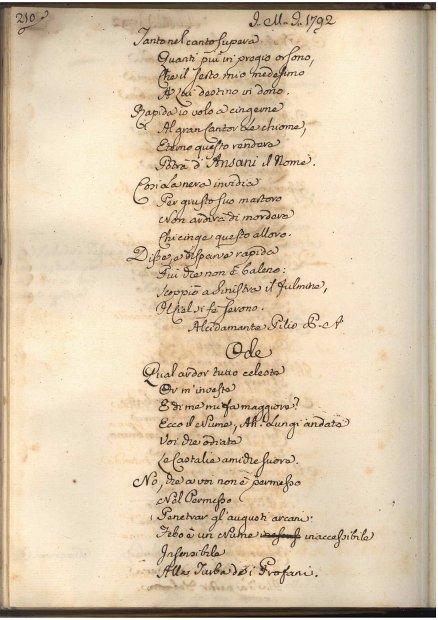 210
J. M. J. 1792
Tanto nel canto supera
Quanti più in pregio or sono,
Che il serto mio medesimo
A lui destino in dono.
Rapida io volo a cingerne
Al gran Cantor le chiome,
Eterno questo rendere
Potrà d'Ansani il Nome.
Così la nera invidia
Per giusto suo martoro
Non ardirà di mordere
Chi cinge questo alloro.
Disse, e disparve rapida
Più che non è baleno:
Scoppiò a Sinistra il fulmine,
Il Ciel si fè sereno.
Alcidamante Pilio P. A
Ode
Qual ardor tutto celeste
Or m'investe
E di me mi fa maggiore?
Ecco il Nume, Ah. Lungi andate
Voi che odiate
Le Castalie amiche suore.
No, che a voi non è permesso
Nel Permesso
Penetrar gl'augusti arcani:
Febo è un Nume inaccessibile
Insensibile
Alla Turba de i Profani.